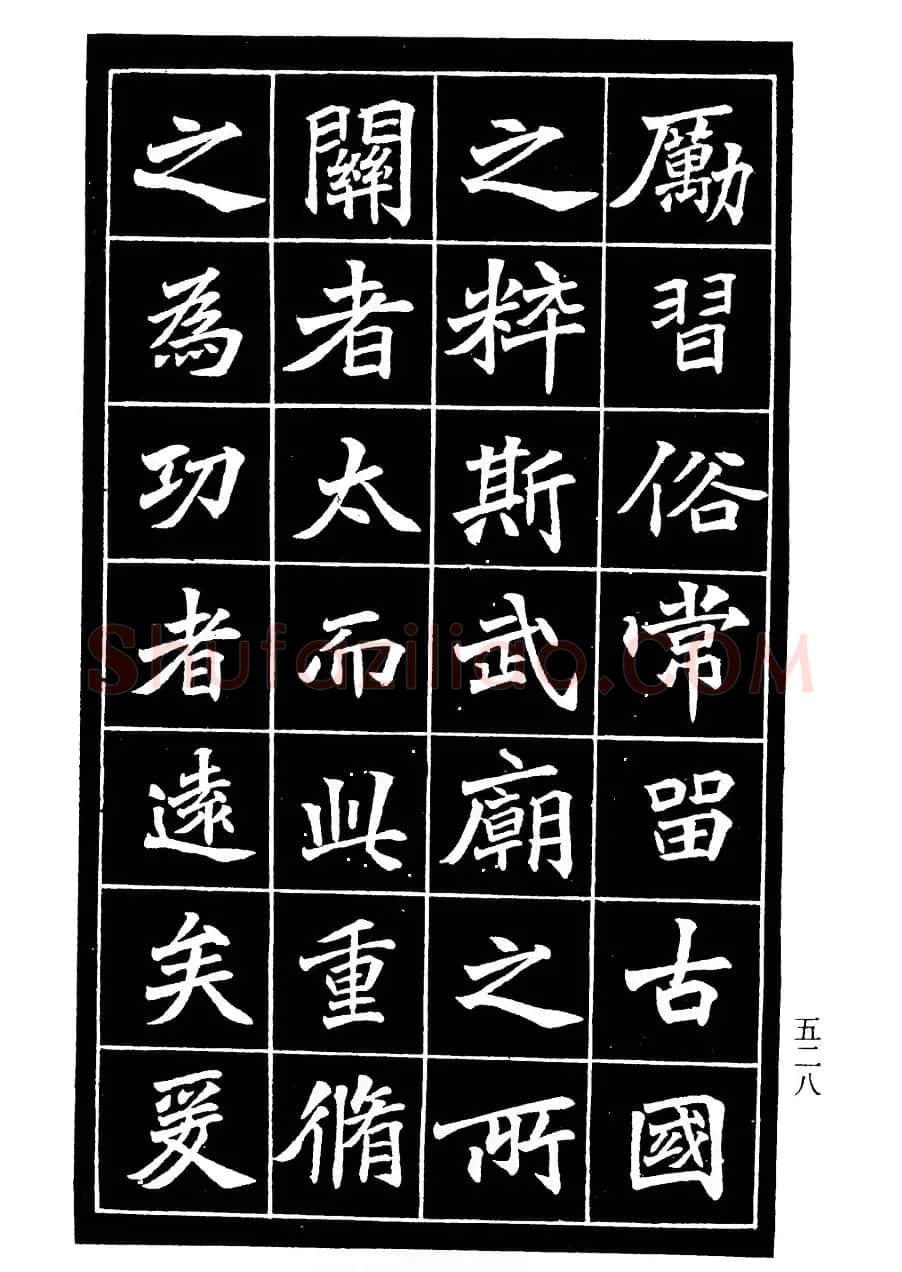 勵習俗常留古國
之粹斯武廟之所
關者太而此重脩
之為功者遠矣爰
五二八
Shufaziliao.com